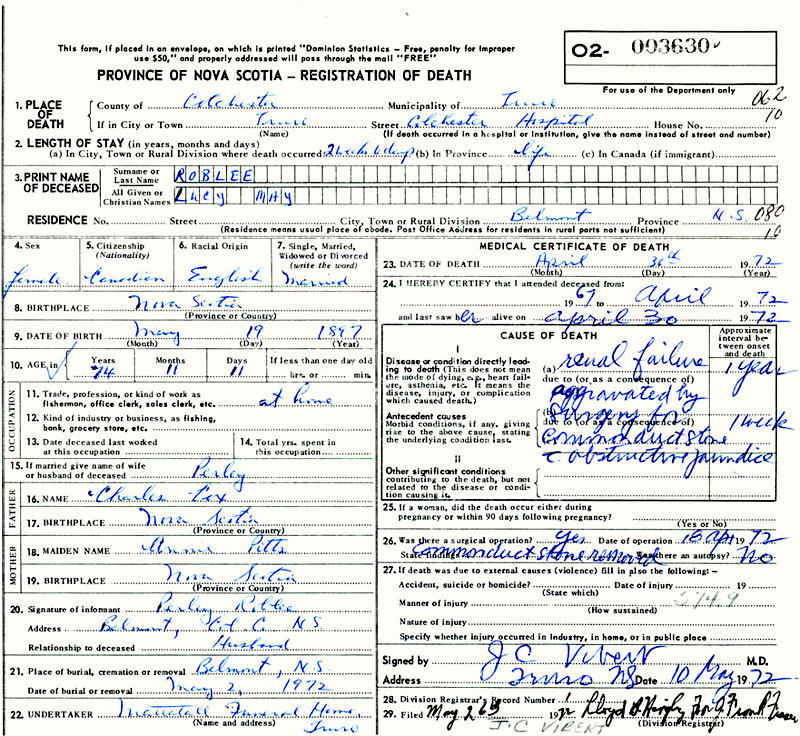 This form, if placed in an envelope, on which is printed "Dominion Statistics – Free, penalty for improper
use $50," and properly addressed will pass through the mail "FREE"
PROVINCE OF NOVA SCOTIA – REGISTRATION OF DEATH
O2- 003630
For use of the Department only
062
10
1. PLACE OF DEATH
County of Colchester Municipality of Truro
If in City or Town Truro Street Colchester Hospital House No.
(Name) (If death occurred in a hospital or institution, give the name instead of street and number)
2. LENGTH OF STAY (in years, months and days)
(a) In City, Town or Rural Division where death occurred 2 weeks 6 days (b) In Province life (c) In Canada (if immigrant)
3. PRINT NAME OF DECEASED
Surname or Last Name ROBLEE
All Given or Christian Names LUCY MAY
RESIDENCE No. Street City, Town or Rural Division Belmont Province N.S. 080
10
(Residence means usual place of abode. Post Office Address for residents in rural parts not sufficient)
4. Sex
female
5. Citizenship
(Nationality)
Canadian
6. Racial Origin
English
7. Single, Married,
Widowed or Divorced
(write the word)
Married
8. BIRTHPLACE Nova Scotia
(Province or Country)
9. DATE OF BIRTH May 19 1897
(Month) (Day) (Year)
10. AGE in
Years Months Days If less than one day old
74 11 11 hrs. or min.
OCCUPATION
11. Trade, profession, or kind of work as
fisherman, office clerk, sales clerk, etc. at home
12. Kind of industry or business, as fishing,
bank, grocery store, etc.
13. Date deceased last worked
at this occupation
14. Total yrs. spent in
this occupation
15. If married give name of wife
or husband of deceased Perley
FATHER
16. NAME Charles Cox
17. BIRTHPLACE Nova Scotia
(Province or Country)
MOTHER
18. MAIDEN NAME Minnie Pitts
19. BIRTHPLACE Nova Scotia
(Province or Country)
20. Signature of informant Perley Roblee
Address Belmont, Col. C. N.S.
Relationship to deceased Husband
21. Place of burial, cremation or removal Belmont, N.S.
Date of burial or removal May 2, 1972
22. UNDERTAKER Mattatall Funeral Home,
Truro
MEDICAL CERTIFICATE OF DEATH
23. DATE OF DEATH April 30th 1972
(Month) (Day) (Year)
24. I HEREBY CERTIFY that I attended deceased from:
1967 to April 1972
and last saw her alive on April 30 1972
CAUSE OF DEATH
Approximate
interval be-
tween onset
and death
I
Disease or condition directly lead-
ing to death (This does not mean
the mode of dying, e.g., heart fail-
ure, asthenia, etc. It means the
disease, injury, or complication
which caused death.)
(a) renal failure 1 year
due to (or as a consequence of)
aggravated by
Antecedent causes
Morbid conditions, if any, giving
rise to the above cause, stating
the underlying condition last.
(b) surgery for 1 week
due to (or as a consequence of)
common duct stone
c obstructive jaundice
II
Other significant conditions
contributing to the death, but not
related to the disease or condi-
tion causing it.
25. If a woman, did the death occur either during
pregnancy or within 90 days following pregnancy?
(Yes or No)
26. Was there a surgical operation? yes Date of operation 18 Apr 1972
State findings Common duct stone removed Was there an autopsy? No
27. If death was due to external causes (violence) fill in also the following –
Accident, suicide or homicide? Date of injury 19
(State which)
Manner of injury 574.9
(How sustained)
Nature of injury
Specify whether injury occurred in industry, in home, or in public place
Signed by J C Vibert M.D.
Address Truro NS Date 10 May 1972
28. Division Registrar's Record Number
29. Filed May 26 1972 Lloyd
(Division Registrar)
J.C VIBERT